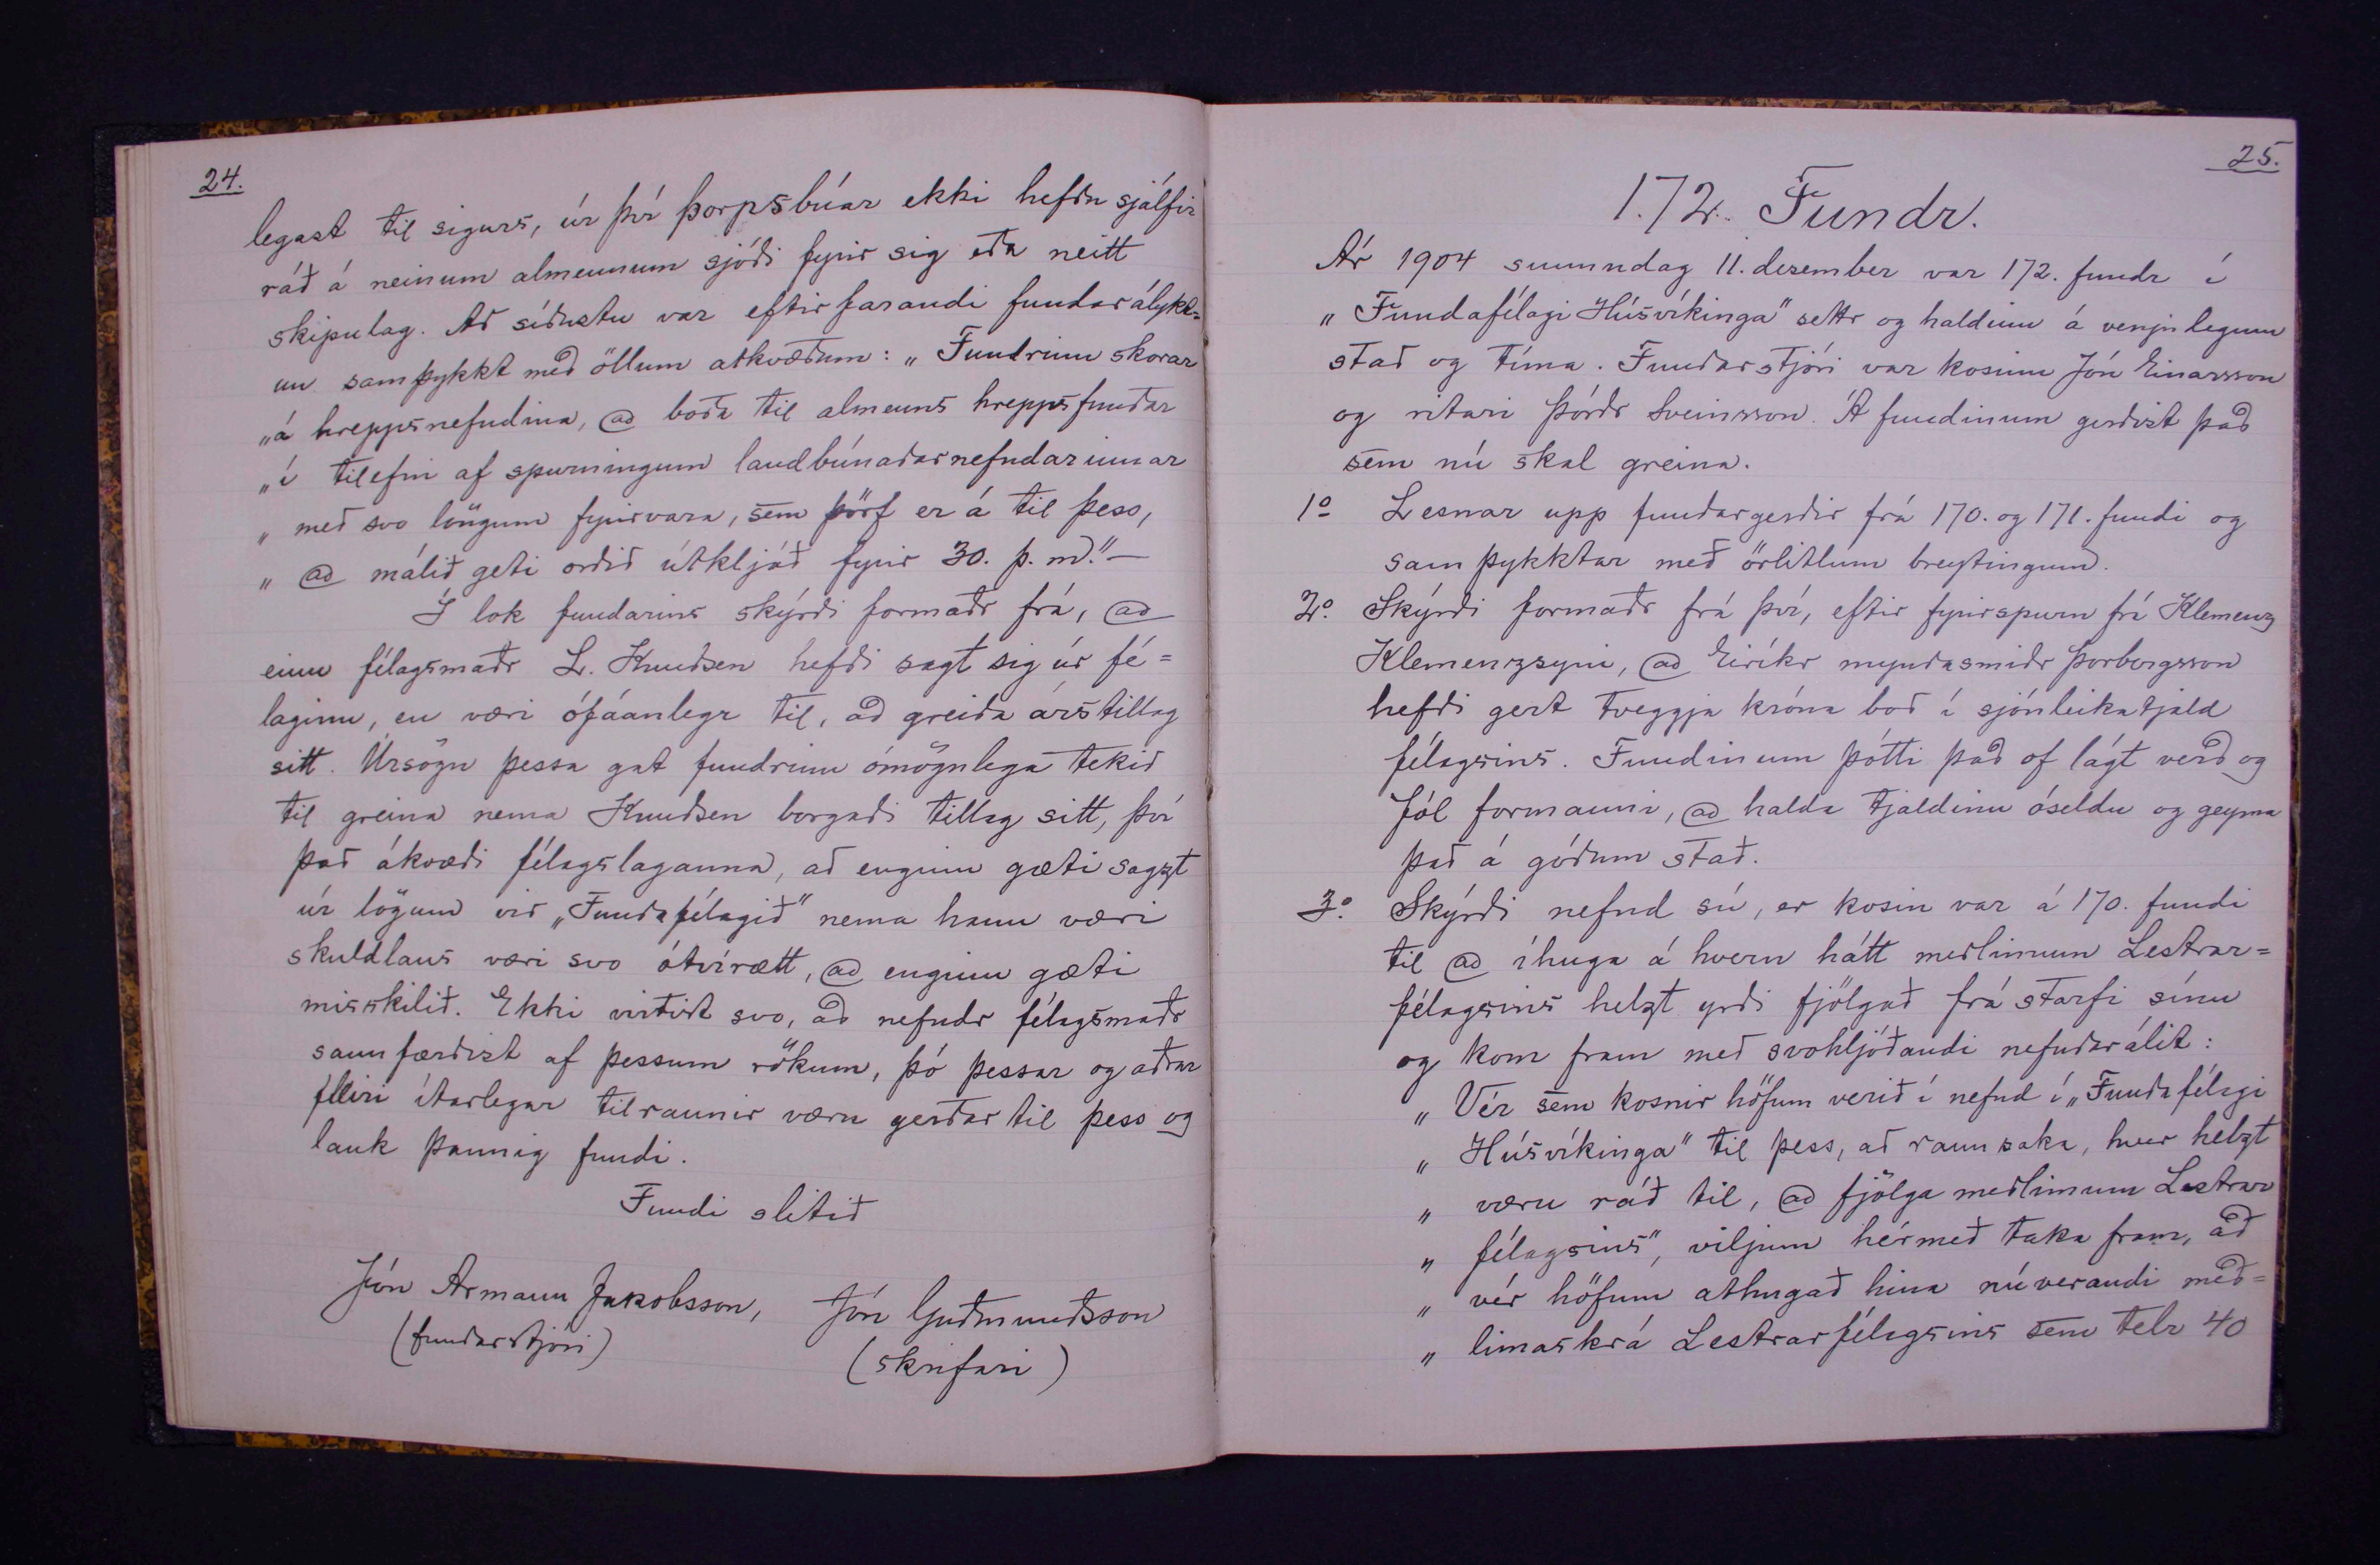 24.
legast til sigurs, úr því þorpsbúar ekki hefðu sjálfir
ráð á neinum almennum sjóði fyrir sig eða neitt
skipulag. Að síðustu var eftirfarandi fundarálykt=
un samþykkt með öllum atkvæðum: „Fundrinn skorar
„á hreppsnefndina, að boða til almenns hreppsfundar
„í tilefni af spurningum landbúnaðarnefndarinnar
„með svo löngum fyrirvara, sem þörf er á til þess,
„að málið geti orðið útkljáð fyrir 30. þ. m." —
Í lok fundarins skýrði formaðr frá, að
einn félagsmaðr L. Knudsen hefði sagt sig úr fé=
laginu, en væri ófáanlegr til, að greiða árstillag
sitt. Úrsögn þessa gat fundrinn ómögulega tekið
til greina nema Knudsen borgaði tillag sitt, því
það ákvæði félagslaganna, að enginn gæti sagzt
úr lögum við „Fundafélagið" nema hann væri
skuldlaus væri svo ótvírætt, að enginn gæti
misskilið. Ekki virtist svo, að nefndr félagsmaðr
sannfærðist af þessum rökum, þó þessar og aðrar
fleiri ítarlegar tilraunir væru gerðar til þess og
lauk þannig fundi.
Fundi slitið
Jón Armann Jakobsson, Jón Guðmundsson
(fundarstjóri) (skrifari)
25.
172. Fundr.
Ár 1904 sunnudag 11. desember var 172. fundr í
„Fundafélagi Húsvíkinga" settr og haldinn á venjulegum
stað og tíma. Fundarstjóri var kosinn Jón Einarsson
og ritari Þórðr Sveinsson. Á fundinum gerðist það
sem nú skal greina.
1º Lesnar upp fundargerðir frá 170. og 171. fundi og
samþykktar með örlitlum breytingum.
2º. Skýrði formaðr frá því, eftir fyrirspurn frá Klemenz
Klemenzsyni, að Eiríkr myndasmiðr Þorbergsson
hefði gert tveggja króna boð í sjónleikatjald
félagsins. Fundinum þótti það of lágt verð og
fól formanni, að halda tjaldinu óseldu og geyma
það á góðum stað.
3º. Skýrði nefnd sú, er kosin var á 170. fundi
til að íhuga á hvern hátt meðlimum Lestrar=
félagsins helzt yrði fjölgað frá starfi sínu
og kom fram með svohljóðandi nefndarálit:
„Vér sem kosnir höfum verið í nefnd í „Fundafélagi
„Húsvíkinga" til þess, að rannsaka, hver helzt
„væru ráð til, að fjölga meðlimum Lestrar
„félagsins", viljum hérmeð taka fram, að
„vér höfum athugað hina núverandi með=
„limaskrá Lestrarfélagsins sem telr 40